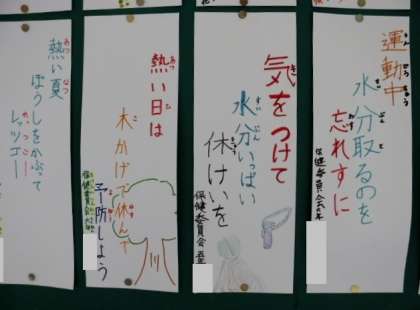 運動中
水分取るのを
忘れずに
保健委員会六年
気をつけて
水分いっぱい
休けいを
保健委員会五年
熱い日は
木かげで休んで
予防しよう
保健委員会
熱い夏
ぼうしをかぶって
レッツゴー